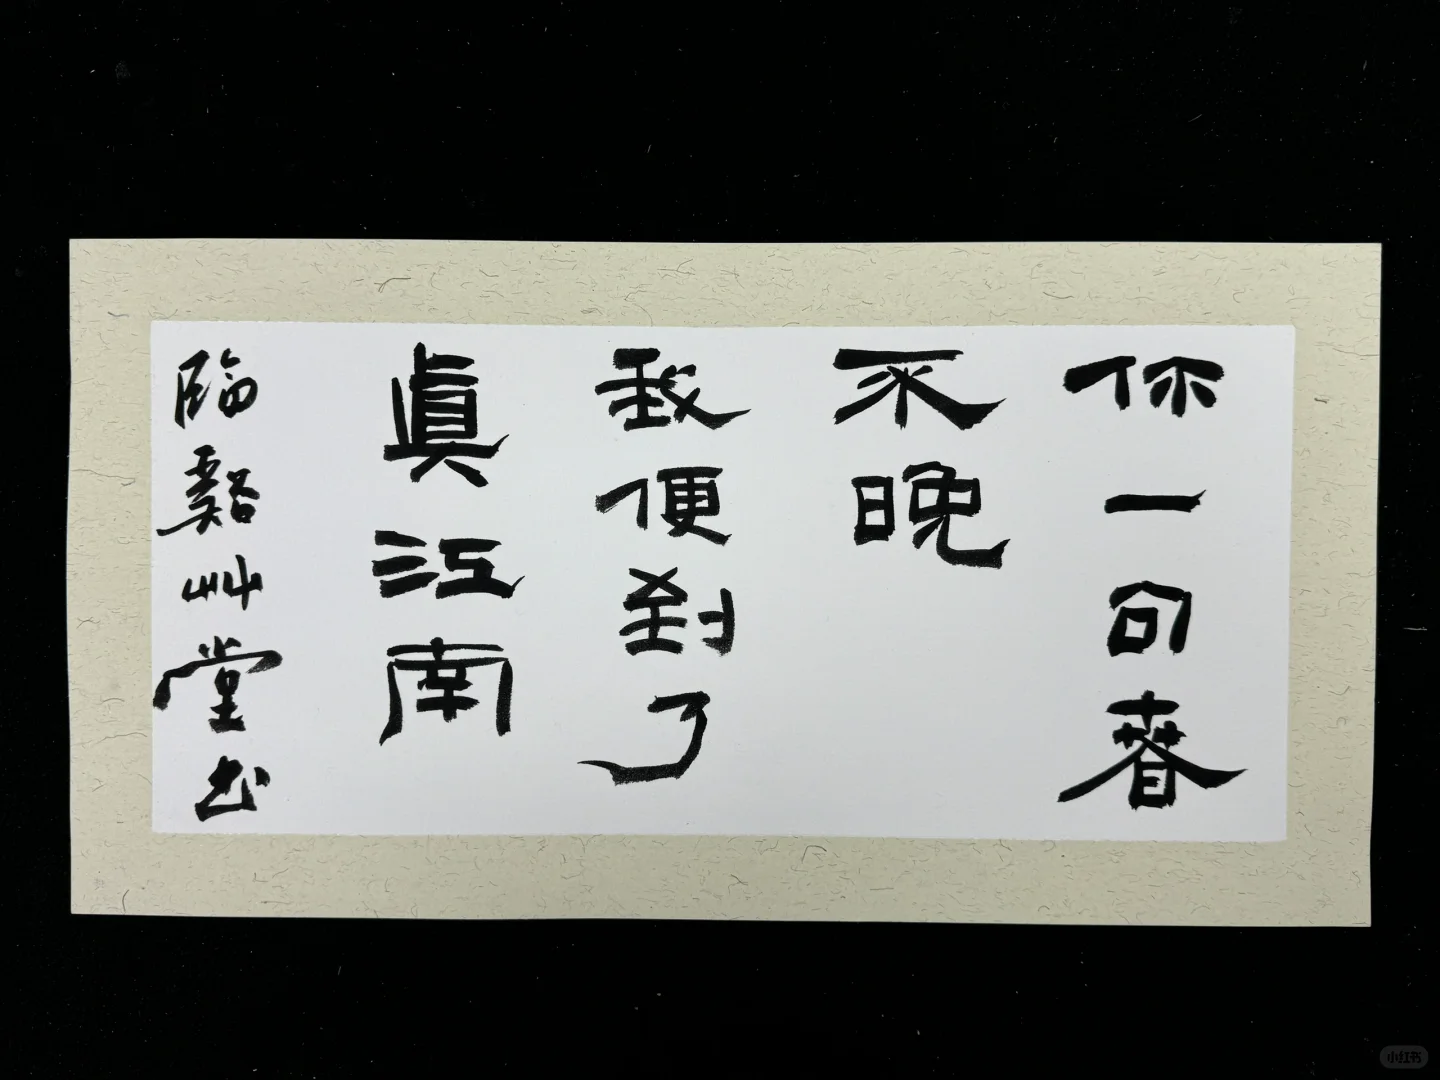 你一句春
不晚
我便到了
真江南
臨谿艸堂书
小红书